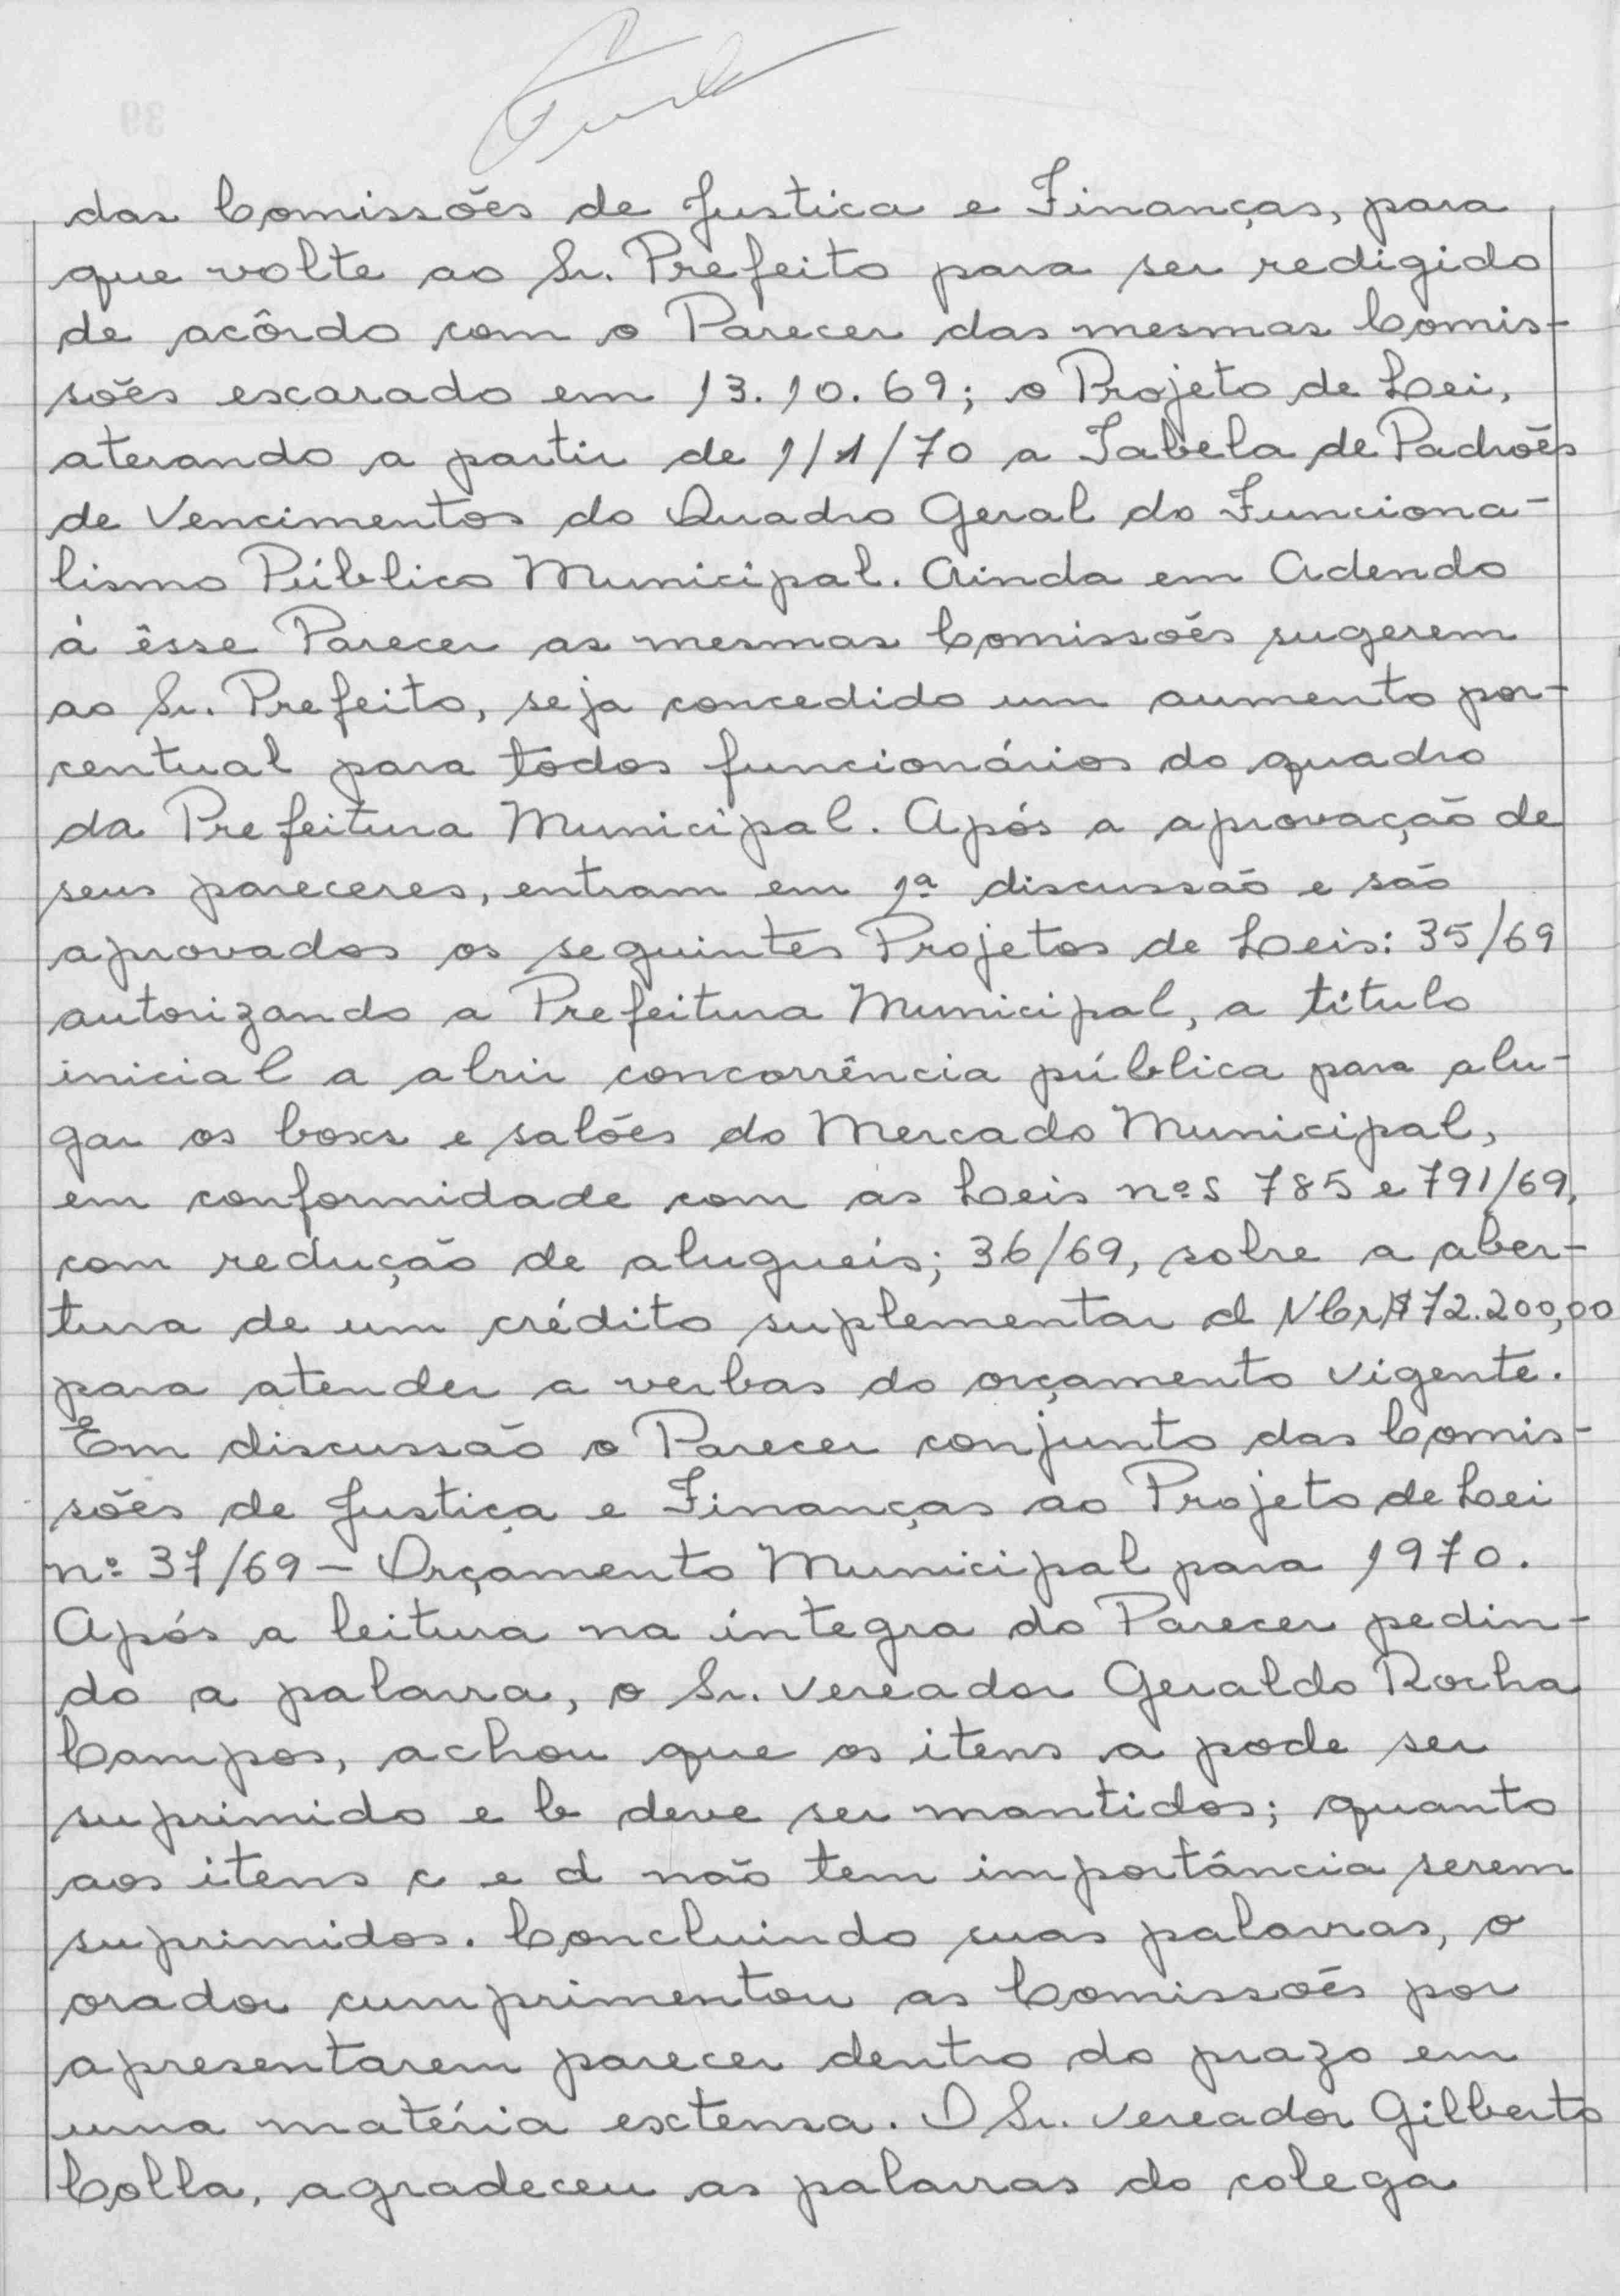 das Comissões de Justica e Finanças, para
que volte ao Sr. Prefeito para ser redigido
de acôrdo com o Parecer das mesmas Comis-
sões escarado em 13.10.69; o Projeto de Lei,
aterando a partir de 1/1/70 a Tabela de Padrões
de Vencimentos do Quadro Geral do Funciona-
lismo Público Municipal. Ainda em Adendo
à êsse Parecer as mesmas Comissões sugerem
ao Sr. Prefeito, seja concedido um aumento por-
centual para todos funcionários do quadro
da Prefeitura Municipal. Após a aprovação de
seus pareceres, entram em 1ª discussão e são
aprovados os seguintes Projetos de Leis: 35/69
autorizando a Prefeitura Municipal, a título
inicial a abrir concorrência pública para alu-
gar os boxs e salões do Mercado Municipal,
em conformidade com as Leis nºs 785 e 791/69,
com redução de alugueis; 36/69, sobre a aber-
tura de um crédito suplementar d NCr$ 72.200,00
para atender a verbas do orçamento vigente.
Em discussão o Parecer conjunto das Comis-
sões de Justiça e Finanças ao Projeto de Lei
nº 37/69 - Orçamento Municipal para 1970.
Após a leitura na íntegra do Parecer pedin-
do a palavra, o Sr. Vereador Geraldo Rocha
Campos, achou que os itens a pode ser
suprimido e b deve ser mantidos; quanto
aos itens c e d não tem importância serem
suprimidos. Concluindo suas palavras, o
orador cumprimentou as Comissões por
apresentarem parecer dentro do prazo em
uma matéria extensa. O Sr. Vereador Gilberto
Colla, agradeceu as palavras do colega